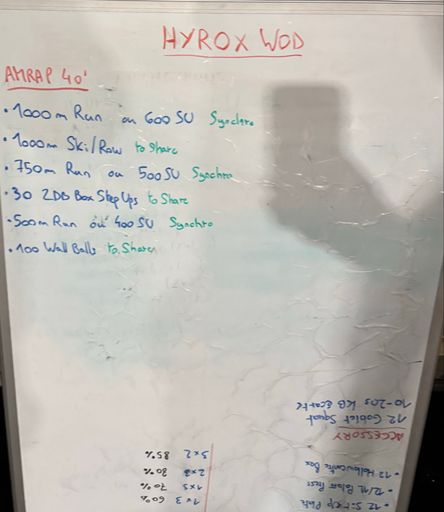 HYROX WOD
AMRAP 40'
• 1000m Run ou 600 SU Synchro
• 1000m Ski/Row to Share
• 750m Run ou 500 SU Synchro
• 30 2DB Box Step Ups to Share
• 500m Run ou 400 SU Synchro
• 100 Wall Balls to Share
ACCESSORY
12 Goblet Squat
10-20s KB
• 12
• 12/12
• 12
1x3 60%
1x5 70%
2x2 80%
5x2 85%